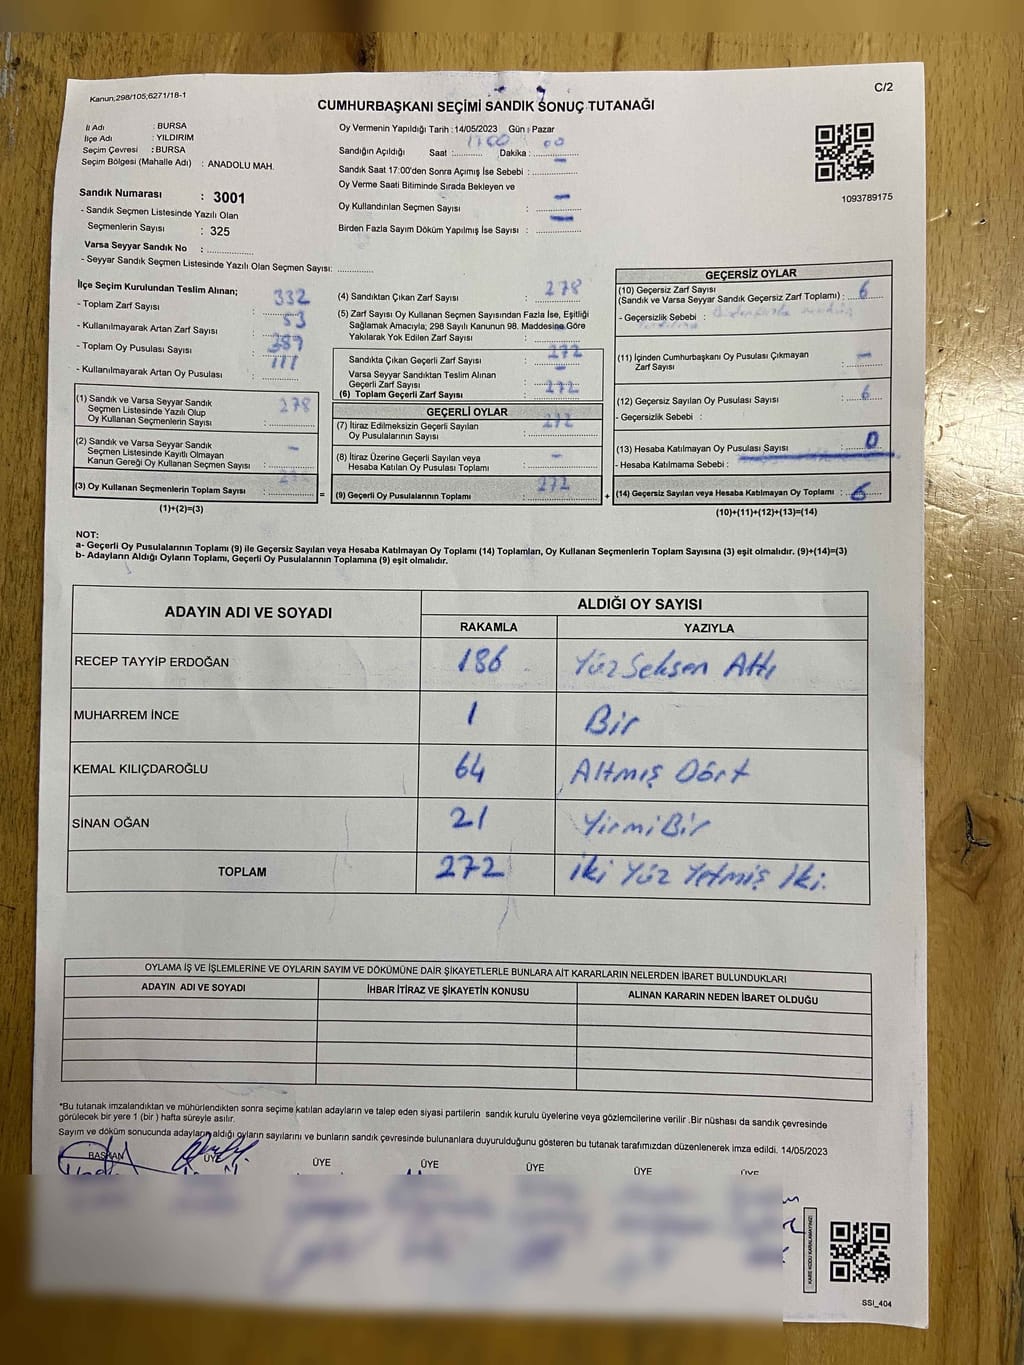 Kanun,298/105,6271/18-1
C/2
CUMHURBAŞKANI SEÇİMİ SANDIK SONUÇ TUTANAĞI
İl Adı : BURSA
İlçe Adı : YILDIRIM
Seçim Çevresi : BURSA
Seçim Bölgesi (Mahalle Adı) : ANADOLU MAH.
Sandık Numarası : 3001
- Sandık Seçmen Listesinde Yazılı Olan
Seçmenlerin Sayısı : 325
Varsa Seyyar Sandık No : ..............
- Seyyar Sandık Seçmen Listesinde Yazılı Olan Seçmen Sayısı: ............
Oy Vermenin Yapıldığı Tarih : 14/05/2023 Gün : Pazar
Sandığın Açıldığı Saat :.......... Dakika : 00
Sandık Saat 17:00'den Sonra Açımış İse Sebebi : –
Oy Verme Saati Bitiminde Sırada Bekleyen ve
Oy Kullandırılan Seçmen Sayısı : –
Birden Fazla Sayım Döküm Yapılmış İse Sayısı : –
1093789175
İlçe Seçim Kurulundan Teslim Alınan;
- Toplam Zarf Sayısı : 332
- Kullanılmayarak Artan Zarf Sayısı : 53
- Toplam Oy Pusulası Sayısı : 389
- Kullanılmayarak Artan Oy Pusulası : 111
(1) Sandık ve Varsa Seyyar Sandık
Seçmen Listesinde Yazılı Olup
Oy Kullanan Seçmenlerin Sayısı : 278
(2) Sandık ve Varsa Seyyar Sandık
Seçmen Listesinde Kayıtlı Olmayan
Kanun Gereği Oy Kullanan Seçmen Sayısı : –
(3) Oy Kullanan Seçmenlerin Toplam Sayısı :
(1)+(2)=(3)
=
(4) Sandıktan Çıkan Zarf Sayısı : 278
(5) Zarf Sayısı Oy Kullanan Seçmen Sayısından Fazla İse, Eşitliği
Sağlamak Amacıyla; 298 Sayılı Kanunun 98. Maddesine Göre
Yakılarak Yok Edilen Zarf Sayısı : –
Sandıkta Çıkan Geçerli Zarf Sayısı : 272
Varsa Seyyar Sandıktan Teslim Alınan
Geçerli Zarf Sayısı : –
(6) Toplam Geçerli Zarf Sayısı : 272
GEÇERLİ OYLAR
(7) İtiraz Edilmeksizin Geçerli Sayılan
Oy Pusulalarının Sayısı : 272
(8) İtiraz Üzerine Geçerli Sayılan veya
Hesaba Katılan Oy Pusulası Toplamı : –
(9) Geçerli Oy Pusulalarının Toplamı : 272
+
GEÇERSİZ OYLAR
(10) Geçersiz Zarf Sayısı
(Sandık ve Varsa Seyyar Sandık Geçersiz Zarf Toplamı) : 6
- Geçersizlik Sebebi :
(11) İçinden Cumhurbaşkanı Oy Pusulası Çıkmayan
Zarf Sayısı : –
(12) Geçersiz Sayılan Oy Pusulası Sayısı : 6
- Geçersizlik Sebebi :
(13) Hesaba Katılmayan Oy Pusulası Sayısı : 0
- Hesaba Katılmama Sebebi :
(14) Geçersiz Sayılan veya Hesaba Katılmayan Oy Toplamı : 6
(10)+(11)+(12)+(13)=(14)
NOT:
a- Geçerli Oy Pusulalarının Toplamı (9) ile Geçersiz Sayılan veya Hesaba Katılmayan Oy Toplamı (14) Toplamları, Oy Kullanan Seçmenlerin Toplam Sayısına (3) eşit olmalıdır. (9)+(14)=(3)
b- Adayların Aldığı Oyların Toplamı, Geçerli Oy Pusulalarının Toplamına (9) eşit olmalıdır.
ADAYIN ADI VE SOYADI ALDIĞI OY SAYISI
RAKAMLA YAZIYLA
RECEP TAYYİP ERDOĞAN 186 Yüz Seksen Altı
MUHARREM İNCE 1 Bir
KEMAL KILIÇDAROĞLU 64 Altmış Dört
SİNAN OĞAN 21 Yirmi Bir
TOPLAM 272 İki Yüz Yetmiş İki.
OYLAMA İŞ VE İŞLEMLERİNE VE OYLARIN SAYIM VE DÖKÜMÜNE DAİR ŞİKAYETLERLE BUNLARA AİT KARARLARIN NELERDEN İBARET BULUNDUKLARI
ADAYIN ADI VE SOYADI İHBAR İTİRAZ VE ŞİKAYETİN KONUSU ALINAN KARARIN NEDEN İBARET OLDUĞU
*Bu tutanak imzalandıktan ve mühürlendikten sonra seçime katılan adayların ve talep eden siyasi partilerin sandık kurulu üyelerine veya gözlemcilerine verilir .Bir nüshası da sandık çevresinde
görülecek bir yere 1 (bir ) hafta süreyle asılır.
Sayım ve döküm sonucunda adayların aldığı oyların sayılarını ve bunların sandık çevresinde bulunanlara duyurulduğunu gösteren bu tutanak tarafımızdan düzenlenerek imza edildi. 14/05/2023
BAŞKAN ÜYE ÜYE ÜYE ÜYE ÜYE ÜYE
KARE KODU KARALAMAYINIZ!
SSI_404